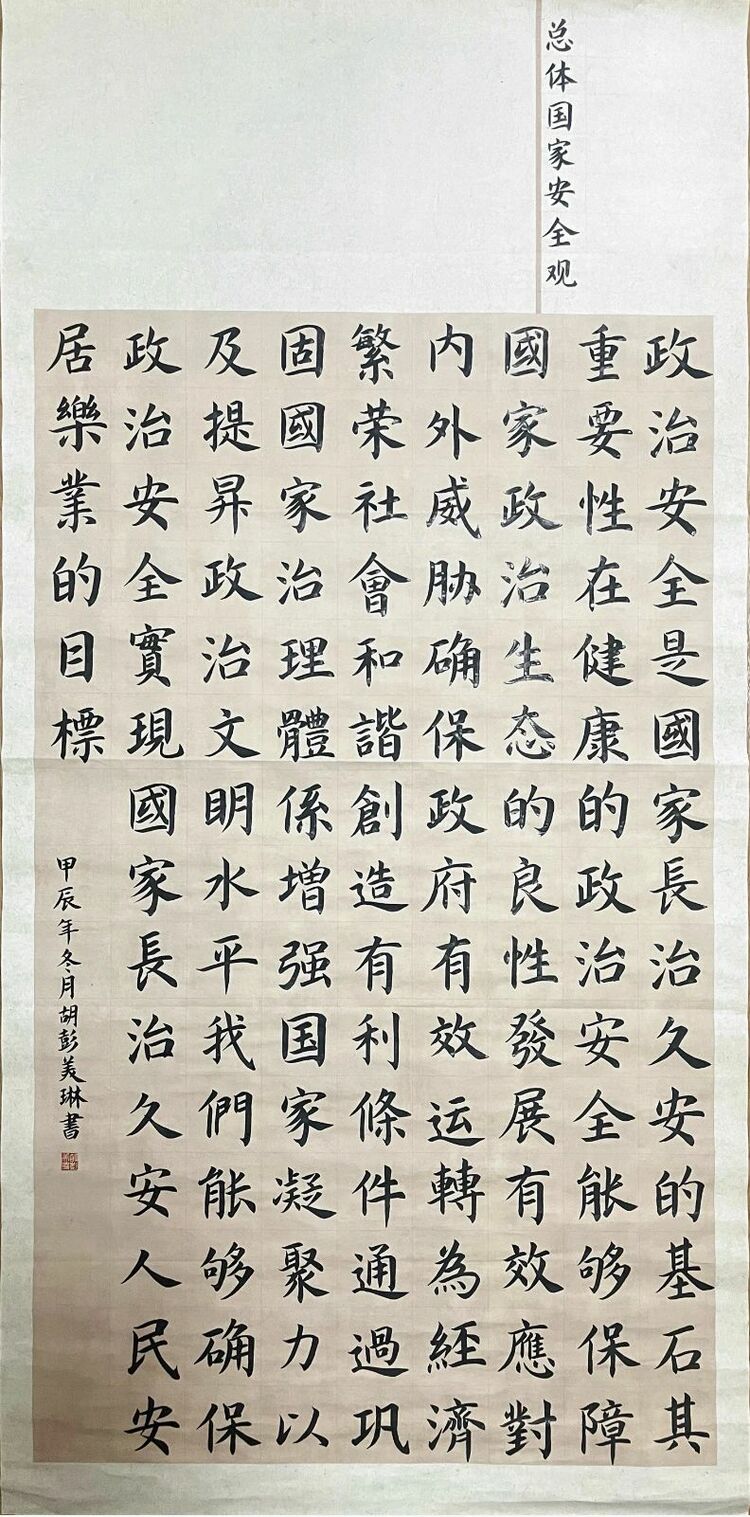 总体国家安全观
政治安全是國家長治久安的基石其
重要性在健康的政治安全能够保障
國家政治生态的良性發展有效應對
内外威胁确保政府有效运轉為經濟
繁荣社會和諧創造有利條件通過巩
固國家治理體係增强国家凝聚力以
及提昇政治文明水平我們能够确保
政治安全實現國家長治久安人民安
居樂業的目標
甲辰年冬月胡彭美琳書